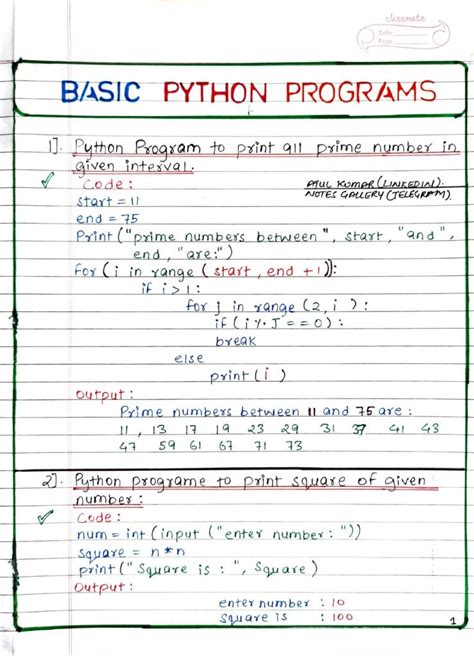 classmate
Date
Page
BASIC PYTHON PROGRAMS
1]. Python Program to print all prime number in
given interval.
Code :
ATUL KUMAR (LINKEDIN).
NOTES GALLERY (TELEGRAM).
start = 11
end = 75
Print ("prime numbers between", start, "and",
end, "are:")
for (i in range (start, end +1)):
if i > 1 :
for j in range (2, i ) :
if ( i % J == 0) :
break
else
print ( i )
Output :
Prime numbers between 11 and 75 are :
11 , 13 17 19 23 29 31 37 41 43
47 59 61 67 71 73
2]. Python programe to print square of given
number :
Code :
num = int (input ("enter number : "))
square = n * n
print (" Square is : ", Square)
Output :
enter number : 10
Square is : 100
1